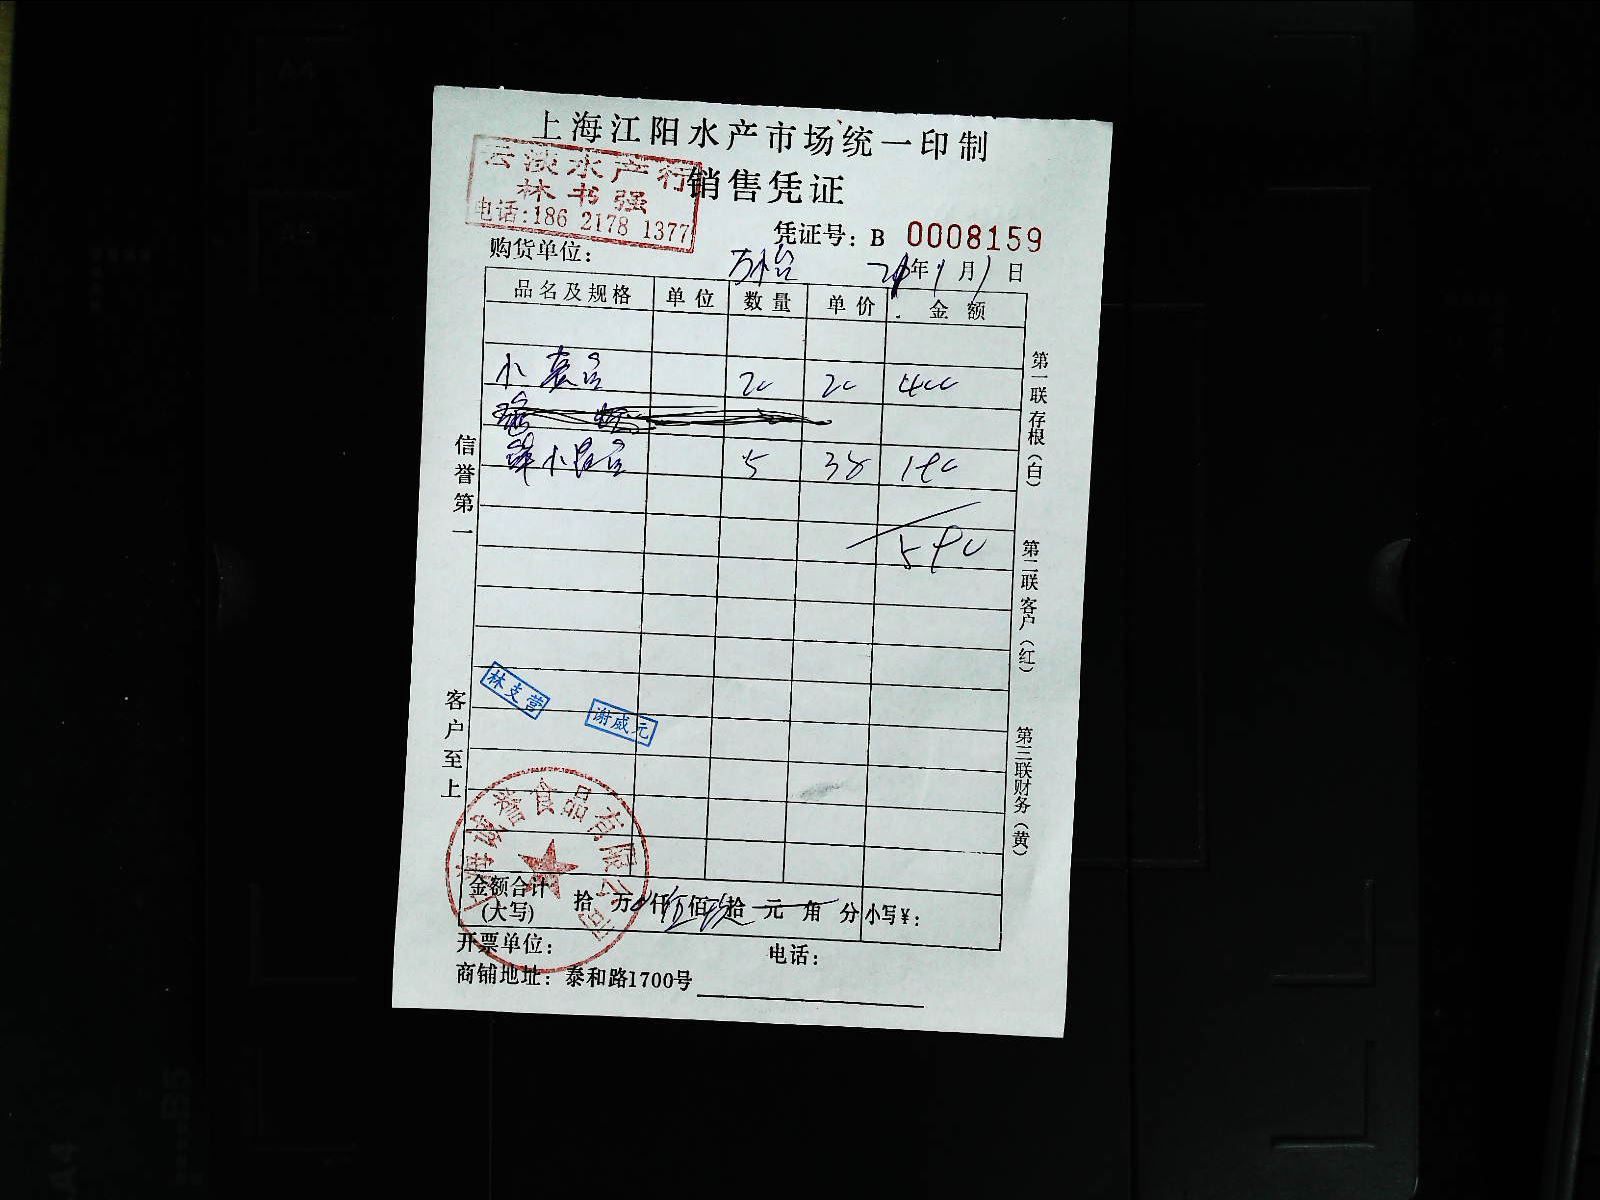 上海江阳水产市场统一印制
云淡水产行
林书强
电话:186 2178 1377
销售凭证
凭证号：B 0008159
购货单位：
年 1 月 1 日
品名及规格 单位 数量 单价 金额
小 20 20 400
小 5 38 190
590
信誉第一
客户至上
第一联存根（白）
第二联客户（红）
第三联财务（黄）
林支营
谢威元
海诚誉食品有限公司
金额合计(大写) 拾 万 仟 伍 佰 玖 拾 元 角 分 小写¥：
开票单位： 电话：
商铺地址：泰和路1700号